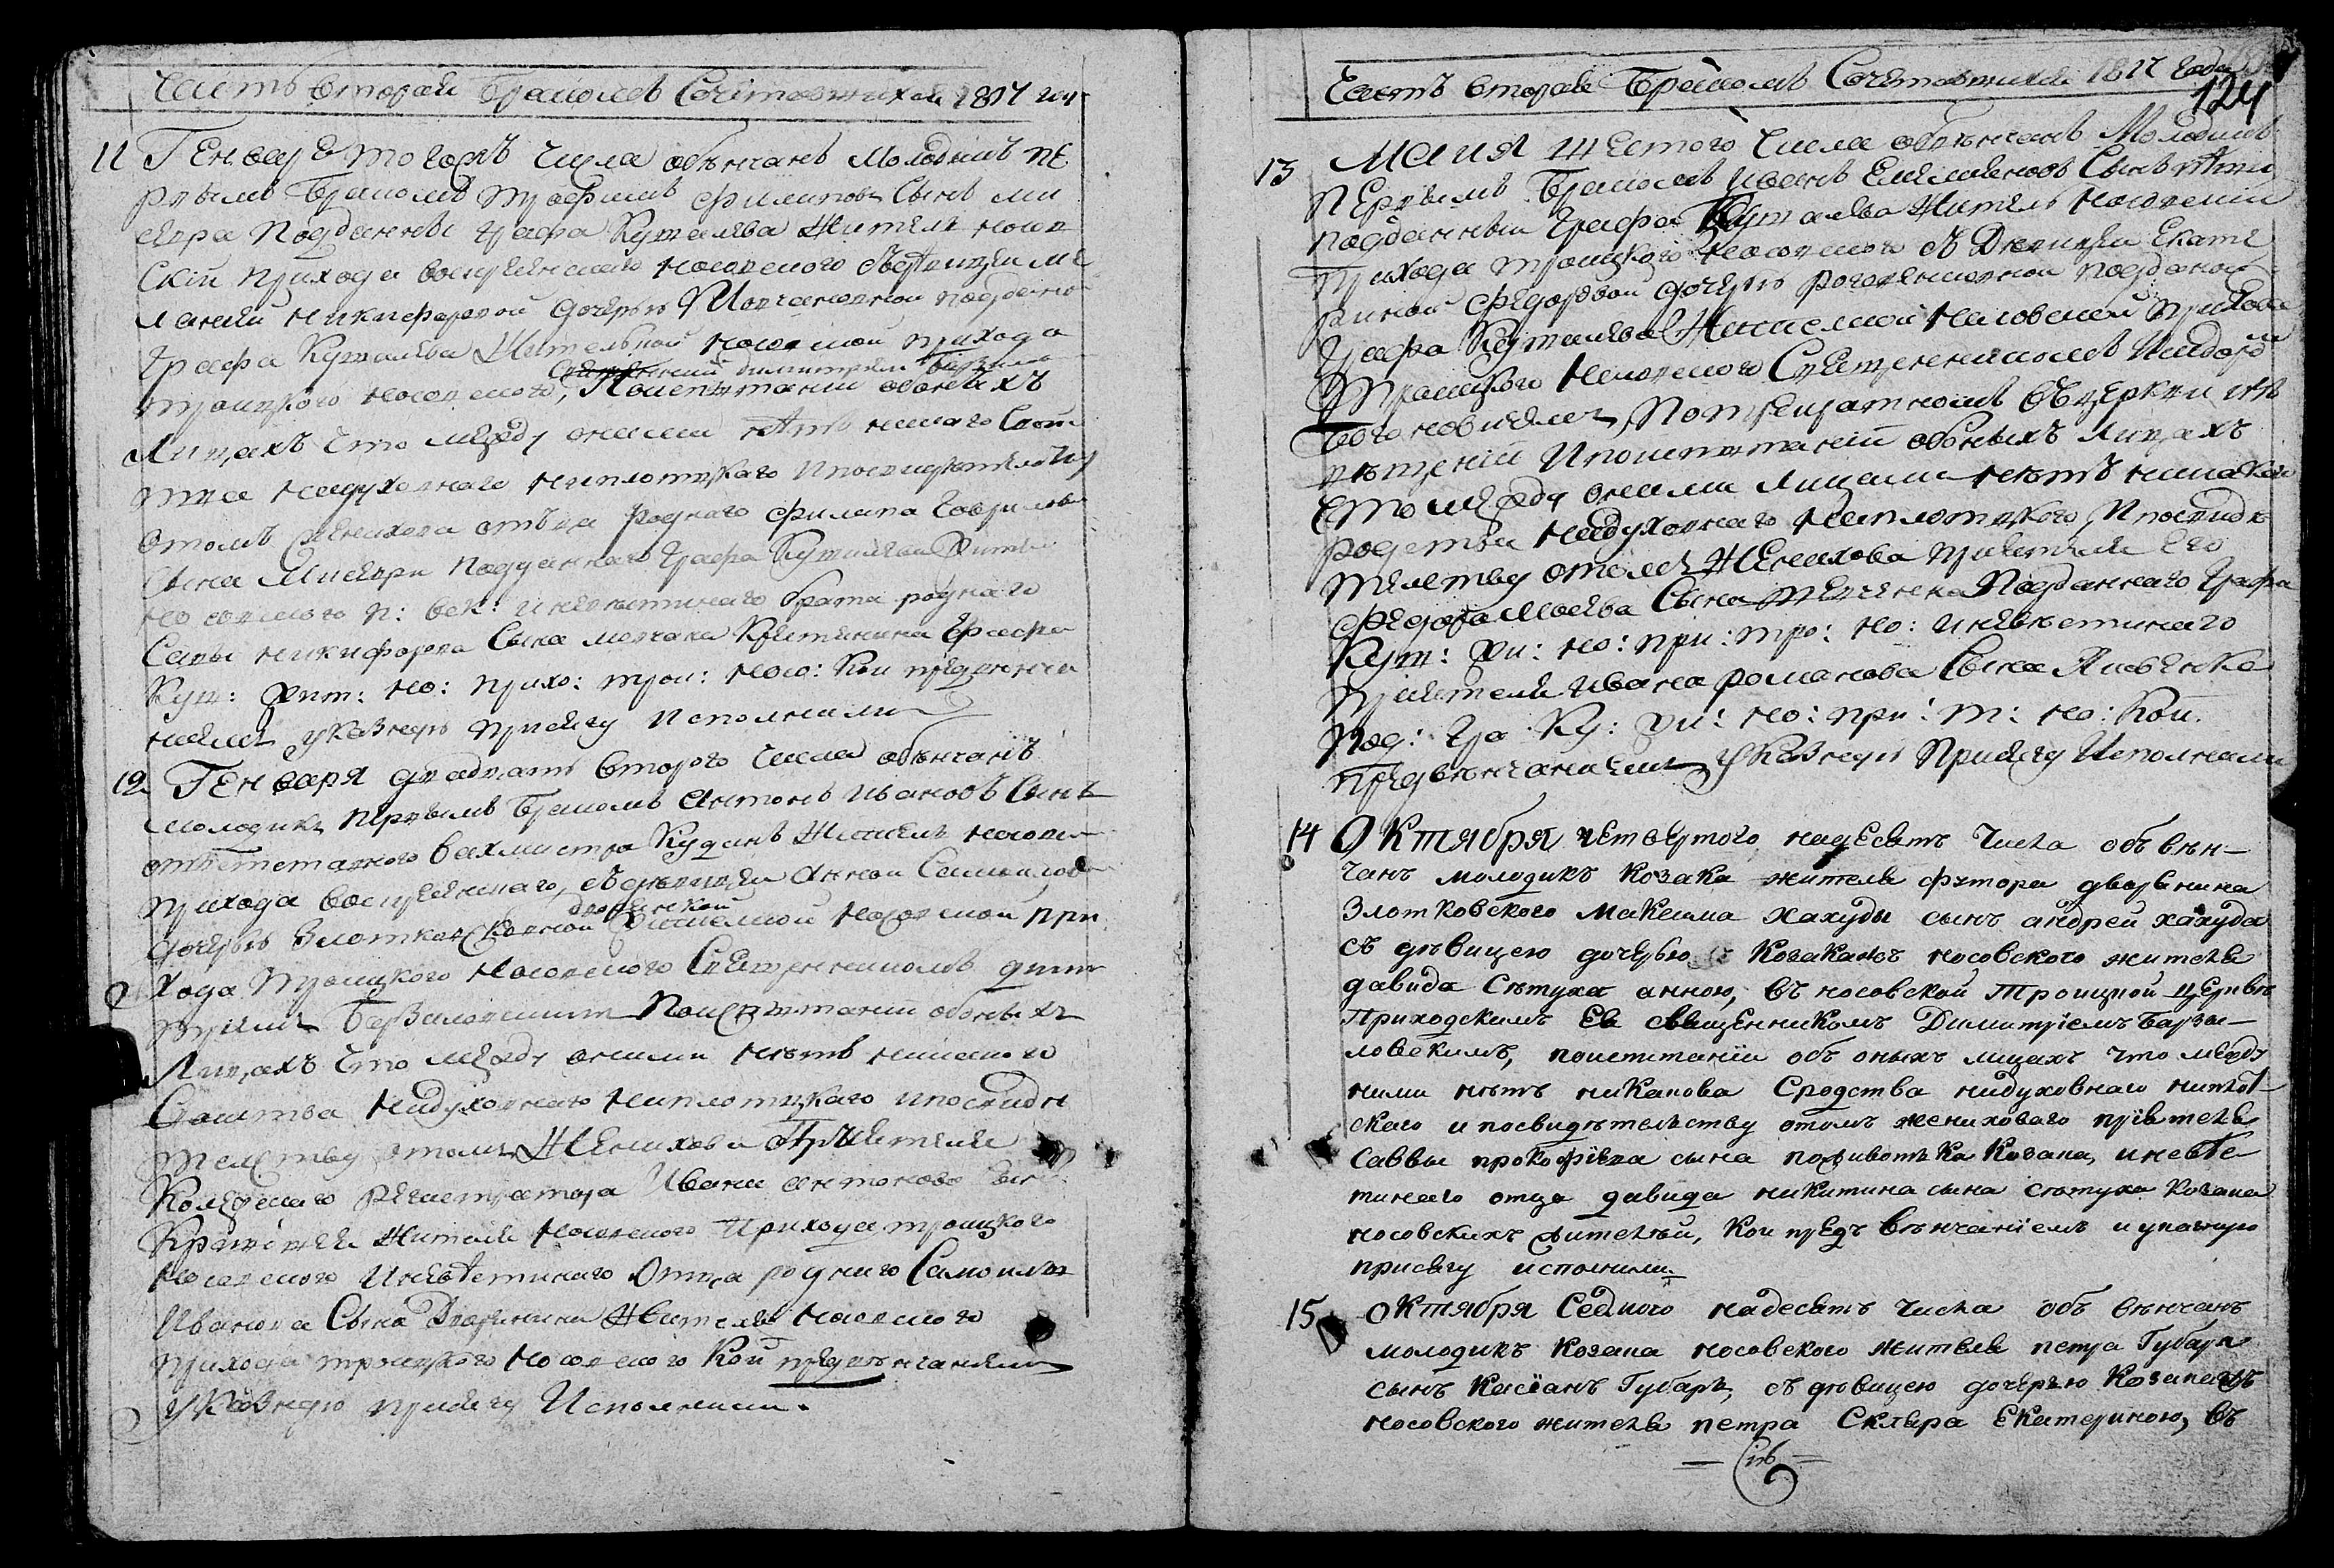 Часть вторая Бракомъ Сочетавшихся 1817 года
11 Генваря того жъ числа обвѣнчанъ Молодикъ пе
рвымъ бракомъ трофимъ филиповъ Сынъ ми
сюра Подданный графа Кушалева житель носов
скій прихода воскресенскаго носовского съ девицею ме
ланіей никифоровой дочерью Молчановной подданной
графа Кушалева Жительной носовской прихода
троицкого носовского, Священникомъ димитріемъ Поиспытаніи обоныхъ
Лицахъ Что между оними нѣтъ никаго Срот
тва нидуховнаго ниплотцкаго ипосвидѣтельству
отомъ женихова отъца роднаго филипа гаврилова
сына Мисюри подданнаго графа Кушалева жителя
носовского п: вск: иневѣстинаго брата роднаго
Савы никифорова Сына молчана Крестянина графа
Куш: жит: но: прихо: трои: носо: Кои предвенча
ніемъ указную присягу исполнили
12 Генваря двадцать второго числа обвѣнчанъ
молодикъ первымъ бракомъ антонъ ивановъ Сынъ
отъставного вахмистра Кудинъ Житель носовски
прихода воскресенскаго, съ дѣвицею анною Самойлово
дочерью Злотковсковной дворянской Жительной носовской при
хода Троицкого носовского Священникомъ дими
тріемъ Барзиловскимъ Поиспытаніи обоныхъ
Лицахъ Что между оними нѣтъ никакого
Сроства нидуховнаго ниплотцкаго ипосвидѣ
телству отомъ Женихова Пріятеля
Колежскаго регистратора Ивана антонова сына
жителя носовского прихода троицкого
носовского иневѣстинаго Отца роднаго Самоила
Иванова Сына Дворянина Жителя носовского
прихода троицкого носовского Кои предвѣнчаніемъ
указную присягу Исполнили.
Часть вторая Бракомъ Сочетавшихся 1817 года
124
13 Маия шестого числа обвѣнчанъ Молодикъ
первымъ бракомъ иванъ Емельяновъ Сынъ
подданный графа Кушалева Житель носовскій
прихода троицкого носовского съ Девицею Екате
риной федоровой дочерью роговенковной подданой
графа Кушалева Жителкой носовской прихода
Троицкого носовского Священникомъ
, По троекратномъ въцеркви из
вѣщеніи Ипоиспытаніи обоныхъ Лицахъ
Что между оними лицами нѣтъ никакого
родства нидуховнаго ниплотцкого, Ипосвидѣ
телству отомъ Женихова пріятеля его
федора Моисѣва Сына Подданнаго графа
Куш: жи: но: при: тро: но: иневѣстинаго
Пріятеля ивана романова Сына
Под: гра Ку: жи: но: при: т: но: Кои.
предвѣнчаніемъ указную Присягу Исполнили
14 Октября четвертого надесять числа объ вѣн-
чанъ молодикъ козака жителя футора дворянина
Злотковского Максима хахуды сынъ андрей хахуда
съ дѣвицею дочерью козака носовского жителя
давида Сѣтуха анною, въ носовской Троицкой церквѣ
Приходскимъ Ея священникомъ Димитріемъ Барзи-
ловскимъ, поиспитаніи объ оныхъ лицахъ что между
ними нѣтъ никакова Сродства нидуховнаго ниплот-
скаго и посвидѣтельству отомъ жениховаго пріятеля
Саввы прокофіева сына козака, иневѣс
тинаго отца давида никитина сына сѣтуха козака
носовскихъ жителѣй, Кои предъ вѣнчаніемъ и указную
присягу исполнили.
15 Октября Седмого надесять числа объ вѣнчанъ
молодикъ козака носовского жителя петра Губаря
сынъ Касіанъ Губарь, съ дѣвицею дочерью козака
носовского жителя петра Скляра Екатериною, въ